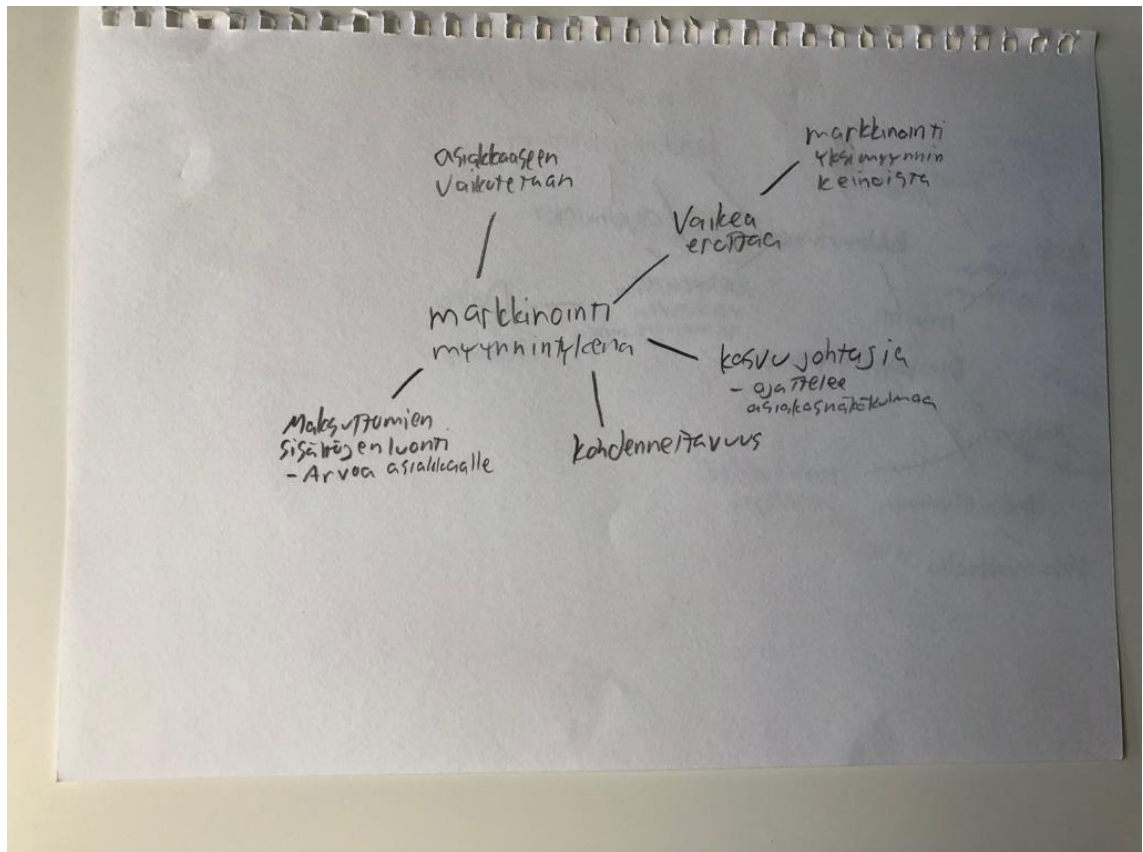 asiakkaaseen
vaikutetaan
markkinointi
yksi myynnin
keinoista
Vaikea
erottaa
markkinointi
myynnin tukena
kasvu johtajia
- ajattelee
asiakasnäkökulmaa
Maksuttomien
sisältöjen luonti
- Arvoa asiakkaalle
kohdennettavuus